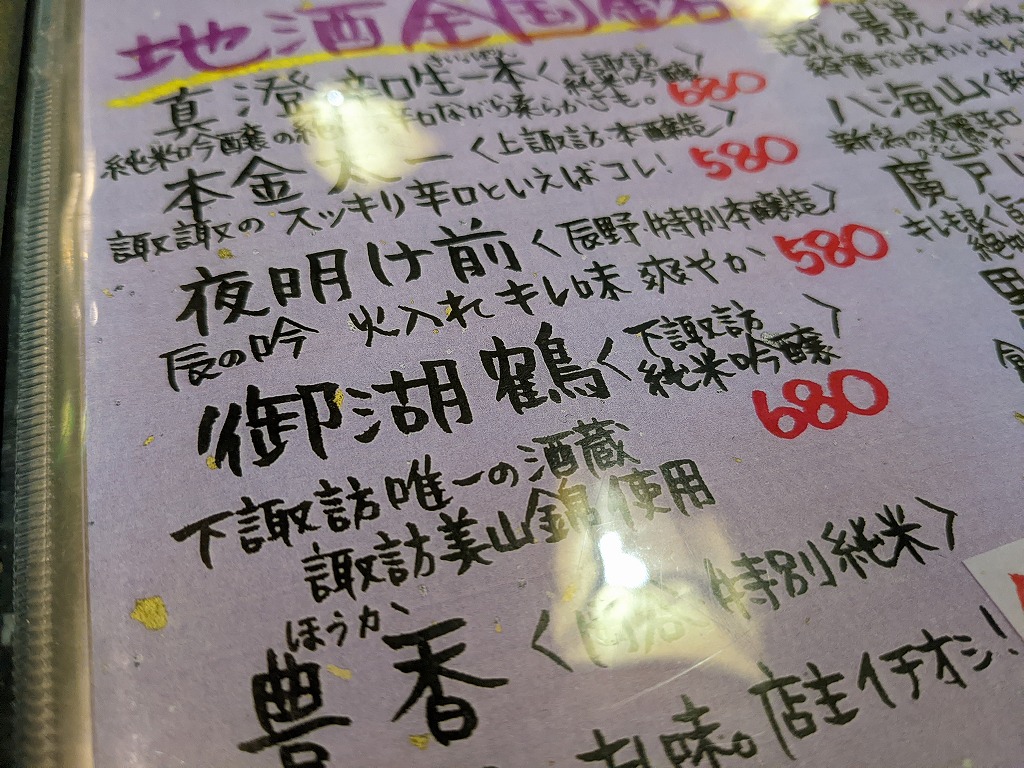 地酒全国銘
真澄 辛口生一本〈上諏訪 純米吟醸〉 680
純米吟醸の 辛口ながら柔らかさも。
本金 太一〈上諏訪・本醸造〉 580
諏訪のスッキリ辛口といえばコレ!
夜明け前〈辰野/特別本醸造〉 580
辰の吟 火入れ キレ味 爽やか
御湖鶴〈下諏訪 純米吟醸〉 680
下諏訪唯一の酒蔵
諏訪美山錦使用
ほうか
豊香〈岡谷 特別純米〉
味。店主イチオシ!
の景虎〈新潟
綺麗な味わい。
八海山〈新
新潟の淡麗辛口
廣戸川
キレも良く